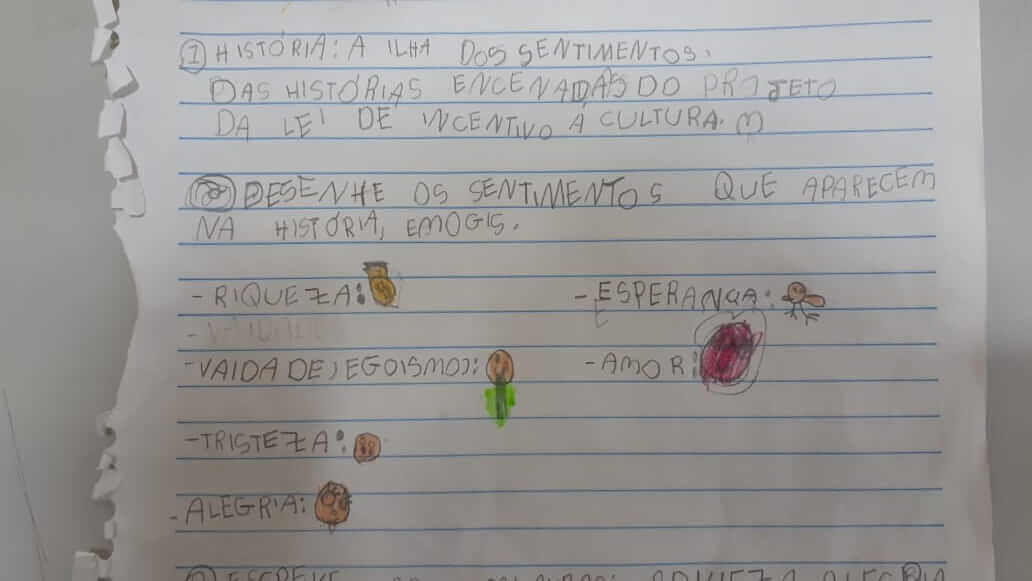 ① HISTÓRIA: A ILHA DOS SENTIMENTOS.
DAS HISTÓRIAS ENCENADAS DO PROJETO
DA LEI DE INCENTIVO À CULTURA.
DESENHE OS SENTIMENTOS QUE APARECEM
NA HISTÓRIA, EMOGIS.
- RIQUEZA:
- ESPERANÇA:
- VAIDADE, EGOISMO):
- AMOR:
- TRISTEZA:
- ALEGRIA: